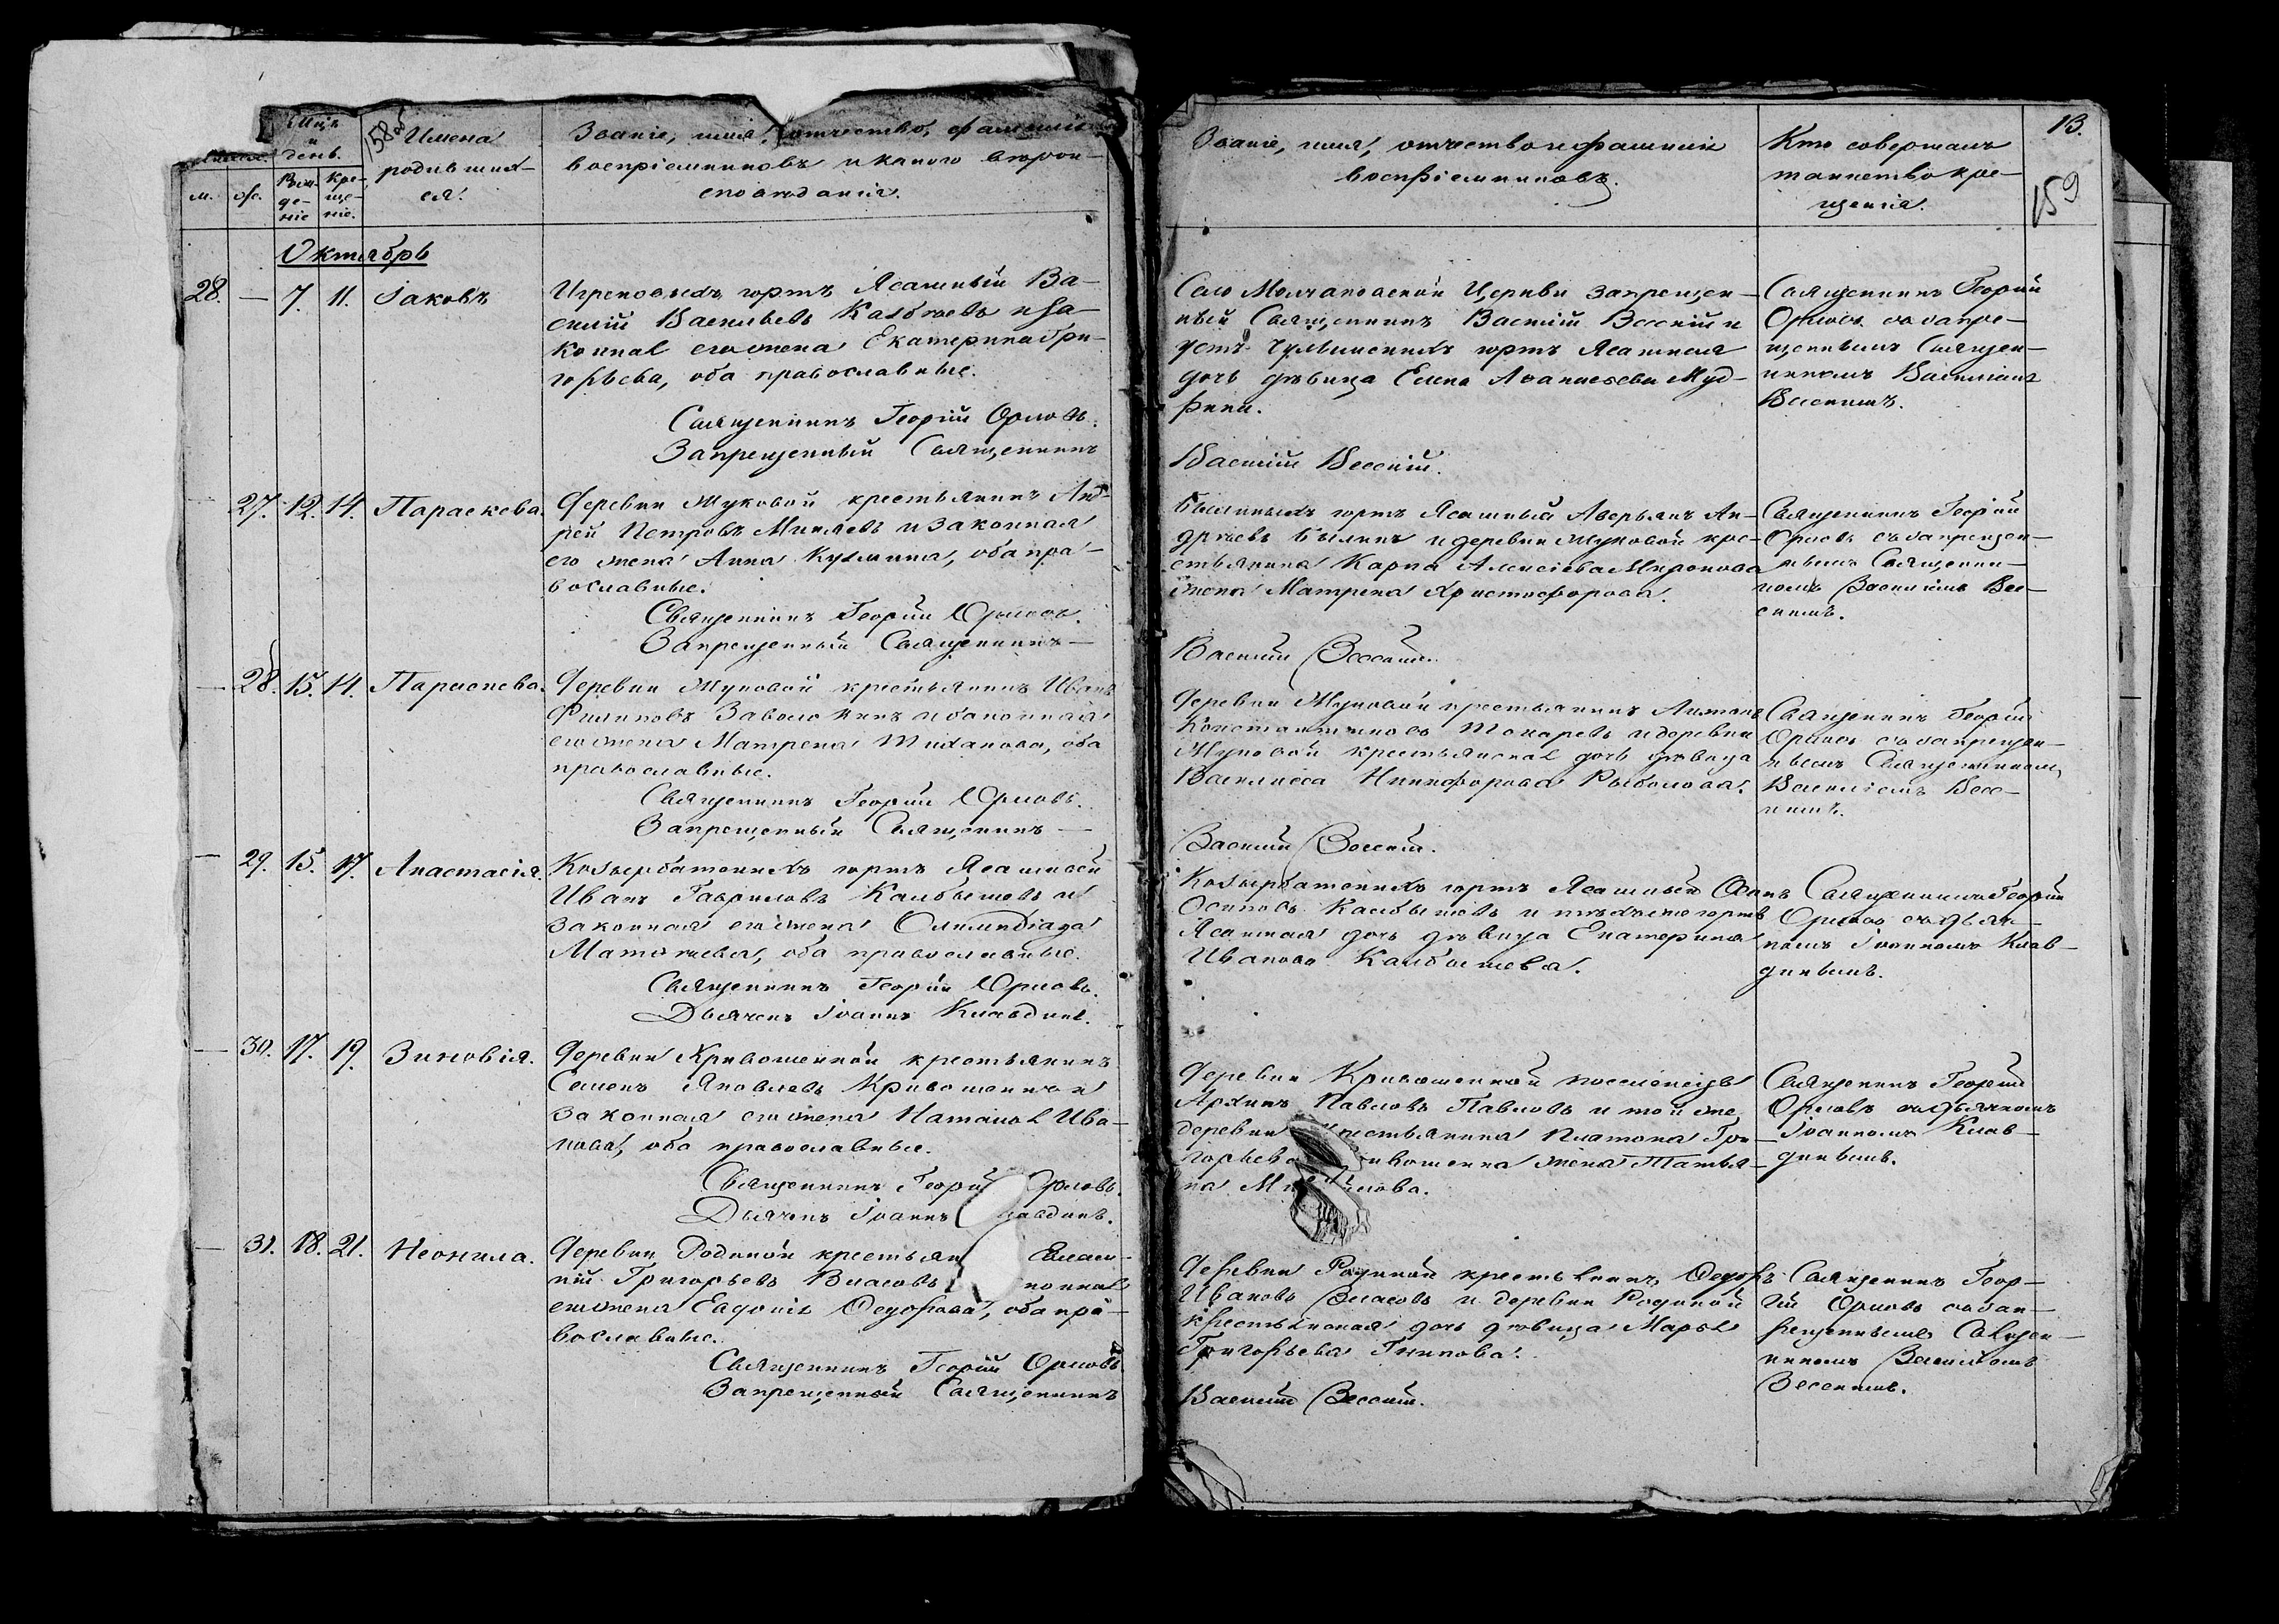 Мѣс.
и
день.
158 об
Имена
родивших-
ся.
м.
ж.
Рож-
де-
ніе
Кре-
ще-
ніе.
Званіе, имя, отчество, фамилія
и какого вѣрои-
сповѣданія.
Октябрь
28. — 7. 11. Іаковъ
юртъ Ясашный Ва-
силій Васильевъ и за-
конная его жена Екатерина Гри-
горьева, оба православные.
Священникъ Георгій Орловъ.
Запрещенный Священникъ
— 27. 12. 14. Параскева.
Деревни Жуковой крестьянинъ Анд-
рей Петровъ и законная
его жена Анна Кузмина, оба пра-
вославные.
Священникъ Георгій Орловъ.
Запрещенный Священникъ —
— 28. 13. 14. Параскева.
Деревни Жуковой крестьянинъ Иванъ
Филиповъ и законная
его жена Матрена Тиханова, оба
православные.
Священникъ Георгій Орловъ.
Запрещенный Священникъ —
— 29. 15. 17. Анастасія.
юртъ Ясашный
Иванъ Гавриловъ и
законная его жена Олимпіада
Матвѣева, оба православные.
Священникъ Георгій Орловъ.
Дьячекъ Іоаннъ Клавдинъ.
— 30. 17. 19. Зиновія.
Деревни Кривошеиной крестьянинъ
Семенъ Яковлевъ Кривошеинъ и
законная его жена Наталья Ива-
нова, оба православные.
Священникъ Георгій Орловъ.
Дьячекъ Іоаннъ
— 31. 18. 21. Неонила.
Деревни Родиной
Григорьевъ Власовъ
его жена Евдокія Ѳедорова, оба пра-
вославные.
Священникъ Георгій Орловъ
Запрещенный Священникъ
13.
159
Званіе, имя, отчество и фамилія
воспріемниковъ.
Кто совершалъ
таинство кре-
щенія.
Села Молчановской Церкви запрещен-
ный Священникъ Василій Весскій и
юртъ Ясашная
дочь дѣвица Елена Аѳанасьева Муд-
рина.
Василій Весскій.
Священникъ Георгій
Орловъ съ запре-
щеннымъ Священ-
никомъ Василіемъ
Весскимъ.
юртъ Ясашный Аверьянъ Ан-
дреевъ и деревни Жуковой кре-
стьянина Карпа Алексѣева Миронова
жена Матрена Христофорова.
Василій Весскій.
Священникъ Георгій
Орловъ съ запрещен-
нымъ Священни-
комъ Василіемъ Вес-
скимъ.
Деревни Жуковой крестьянинъ
Константиновъ Токаревъ и деревни
Жуковой крестьянская дочь дѣвица
Василисса Никифорова Рыболова.
Василій Весскій.
Священникъ Георгій
Орловъ съ запрещен-
нымъ Священникомъ
Василіемъ Весс-
кимъ.
юртъ Ясашный Осипъ
Осиповъ и тѣхъ же юртъ
Ясашная дочь дѣвица Екатерина
Иванова
Священникъ Георгій
Орловъ съ дьяч-
комъ Іоанномъ Клав-
динымъ.
Деревни Кривошеиной поселенецъ
Архипъ Павловъ Павловъ и той же
деревни крестьянина Платона Гри-
горьева жена Татья-
на
Священникъ Георгій
Орловъ съ дьячкомъ
Іоанномъ Клав-
динымъ.
Деревни Родиной крестьянинъ Ѳедоръ
Ивановъ Власовъ и деревни Родиной
крестьянская дочь дѣвица Марья
Григорьева
Василій Весскій.
Священникъ Геор-
гій Орловъ съ зап-
рещеннымъ Священ-
никомъ Василіемъ
Весскимъ.